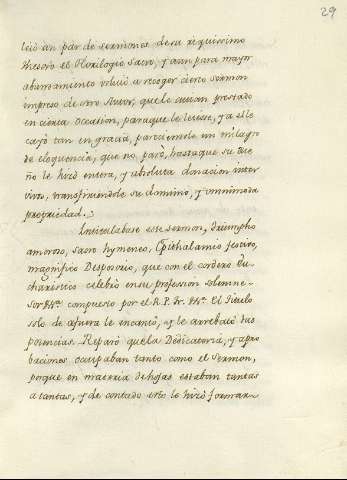 29
leió un par de sermones de su riquissimo
thesoro el Florilogio Sacro, y aun para mayor
abundamiento volvió a recoger cierto sermon
impreso de otro Autor, que le avian prestado
en cierta ocasion, para que le leiesse, y a elle
cayó tan en gracia, pareciendole un milagro
de eloquencia, que no paró, hasta que su due
ño le hizo entera, y absoluta donacion inter
vivos, transfiriendole su dominio, y omnimoda
propriedad.
Intitulabase este sermon, Triumpho
amoroso, sacro hymeneo, Epithalamio festivo,
magnifico Desposorio, que con el cordero Eu-
charistico celebró en su profession solemne
Sor F.ª compuesto por el R. P. Fr. F.º El titulo
solo de afuera le encantó, y le arrebató las
potencias. Reparó que la Dedicatoria, y apro
baciones ocupaban tanto como el sermon,
porque en materia de hojas estaban tantas
a tantas, y de contado esto le hizo formar-